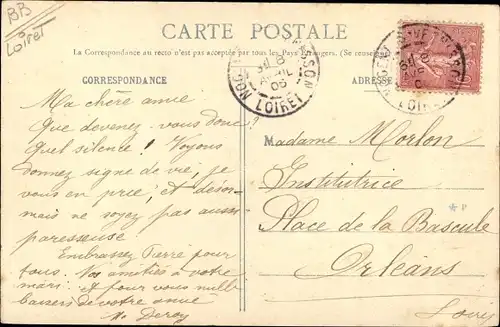 BB
Loiret
CARTE POSTALE
La Correspondance au recto n'est pas acceptée par tous les Pays Étrangers. (Se rense
CORRESPONDANCE
ADRESSE
AVRIL
06
LOIRET
LOIRET
Ma chère amie
Que devenez-vous donc ?
Quel silence ! Voyons
donnez signe de vie, je
vous en prie, et désor-
mais ne soyez pas aussi
paresseuse
Embrassez Pierre pour
tous. Nos amitiés à votre
mari et pour vous mille
baisers de votre amie
M. Deroy
Madame Morlon
Institutrice
Place de la Bascule
Orléans